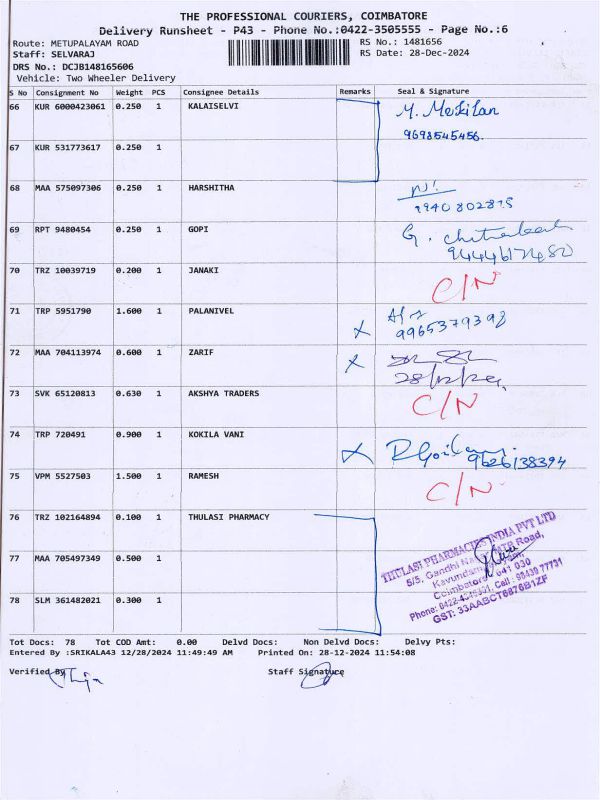 THE PROFESSIONAL COURIERS, COIMBATORE
Delivery Runsheet - P43 - Phone No.:0422-3505555 - Page No.:6
Route: METUPALAYAM ROAD RS No.: 1481656
Staff: SELVARAJ RS Date: 28-Dec-2024
DRS No.: DCJB148165606
Vehicle: Two Wheeler Delivery
S No Consignment No Weight PCS Consignee Details Remarks Seal & Signature
66 KUR 6000423061 0.250 1 KALAISELVI M. Mokilan
9698545456.
67 KUR 531773617 0.250 1
68 MAA 575097306 0.250 1 HARSHITHA
69 RPT 9480454 0.250 1 GOPI G.
70 TRZ 10039719 0.200 1 JANAKI C/N
71 TRP 5951790 1.600 1 PALANIVEL X
9965379398
72 MAA 704113974 0.600 1 ZARIF X
28/12/24
73 SVK 65120813 0.630 1 AKSHYA TRADERS C/N
74 TRP 720491 0.900 1 KOKILA VANI X
9626138394
75 VPM 5527503 1.500 1 RAMESH C/N
76 TRZ 102164894 0.100 1 THULASI PHARMACY
77 MAA 705497349 0.500 1
78 SLM 361482021 0.300 1
THULASI PHARMACIES INDIA PVT LTD
5/5, Gandhi Road,
Coimbatore 641 030
GST: 33AABCT6876B1ZF
Tot Docs: 78 Tot COD Amt: 0.00 Delvd Docs: Non Delvd Docs: Delvy Pts:
Entered By :SRIKALA43 12/28/2024 11:49:49 AM Printed On: 28-12-2024 11:54:08
Verified By Staff Signature